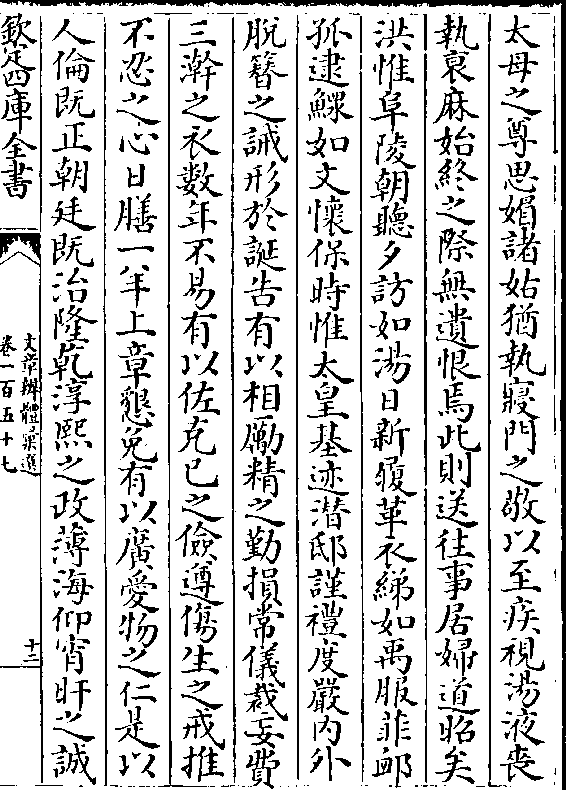 太母之尊思媚諸姑猶執寢門之敬以至疾視湯液喪
執衰麻始終之際無遺恨焉此則送往事居婦道昭矣
洪惟阜陵朝聽夕訪如湯日新履革衣綈如禹服菲卹
孤逮鰥如文懷保時惟太皇基迹潛邸謹禮度嚴內外
脫簪之誡形於誕告有以相勵精之勤損常儀裁妄費
三澣之衣數年不易有以佐克已之儉遵傷生之戒推
不忍之心日膳一羊上章懇免有以廣愛物之仁是以
人倫既正朝廷既治隆乾淳熙之政薄海仰宵旰之誠
欽定四庫全書
文章辨體彙選
卷一百五十七
十三